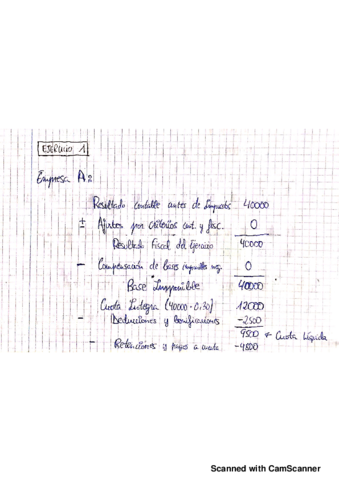 EJERCICIO 1
Empresa A:
Resultado contable antes de Impuestos 40000
± Ajustes por criterios cont. y fisc. 0
Resultado Fiscal del Ejercicio 40000
- Compensación de bases imponibles neg. 0
Base Imponible 40000
Cuota Íntegra (40000 · 0.30) 12000
- Deducciones y bonificaciones -2500
9500 ← Cuota Líquida
- Retenciones y pagos a cuenta
Scanned with CamScanner